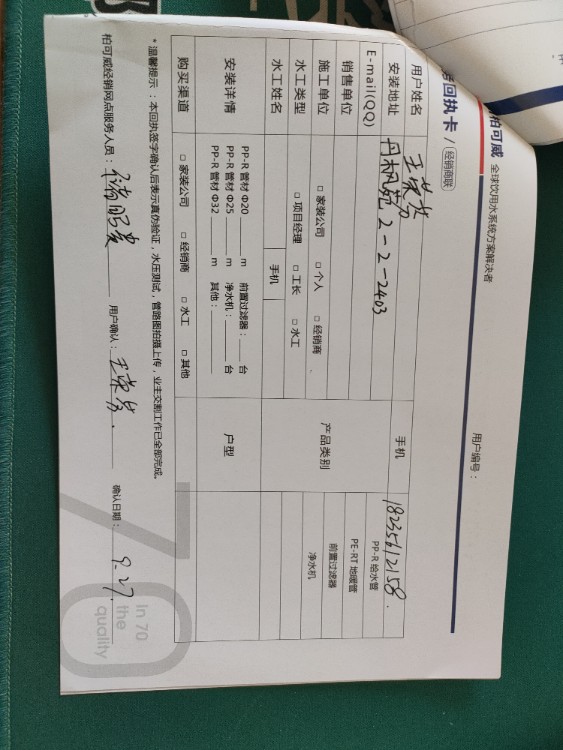 柏可威 全球饮用水系统方案解决者
回执卡 / 经销商联
用户编号：
用户姓名 王荣芳 手机 18235612158
安装地址 丹枫苑 2-2-2403
E-mail(QQ)
销售单位
施工单位 □ 家装公司 □ 个人 □ 经销商
产品类别 PP-R 给水管
PE-RT 地暖管
前置过滤器
净水机
水工类型 □ 项目经理 □ 工长 □ 水工
水工姓名 手机
安装详情 PP-R 管材 Φ20 m 前置过滤器： 台
PP-R 管材 Φ25 m 净水机： 台
PP-R 管材 Φ32 m 其他：
户型
购买渠道 □ 家装公司 □ 经销商 □ 水工 □ 其他
* 温馨提示：本回执签字确认后表示真伪验证，水压测试，管路图拍摄上传，业主交割工作已全部完成。
柏可威经销网点服务人员： 用户确认：王荣芳. 确认日期：9.27.
70
In 70
the
quality